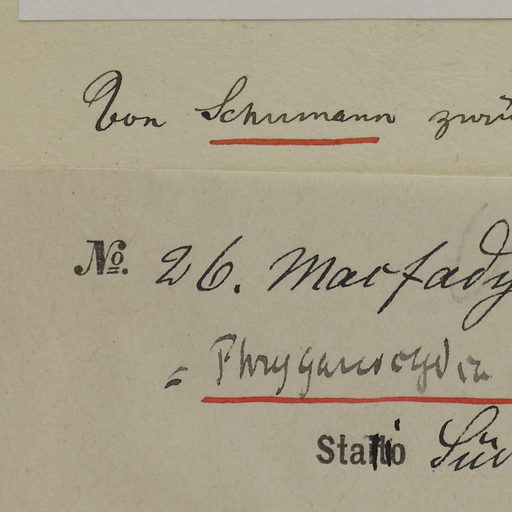 Von Schumann zurü
No. 26. Macfady
= Phryganocydia
Statio Süd